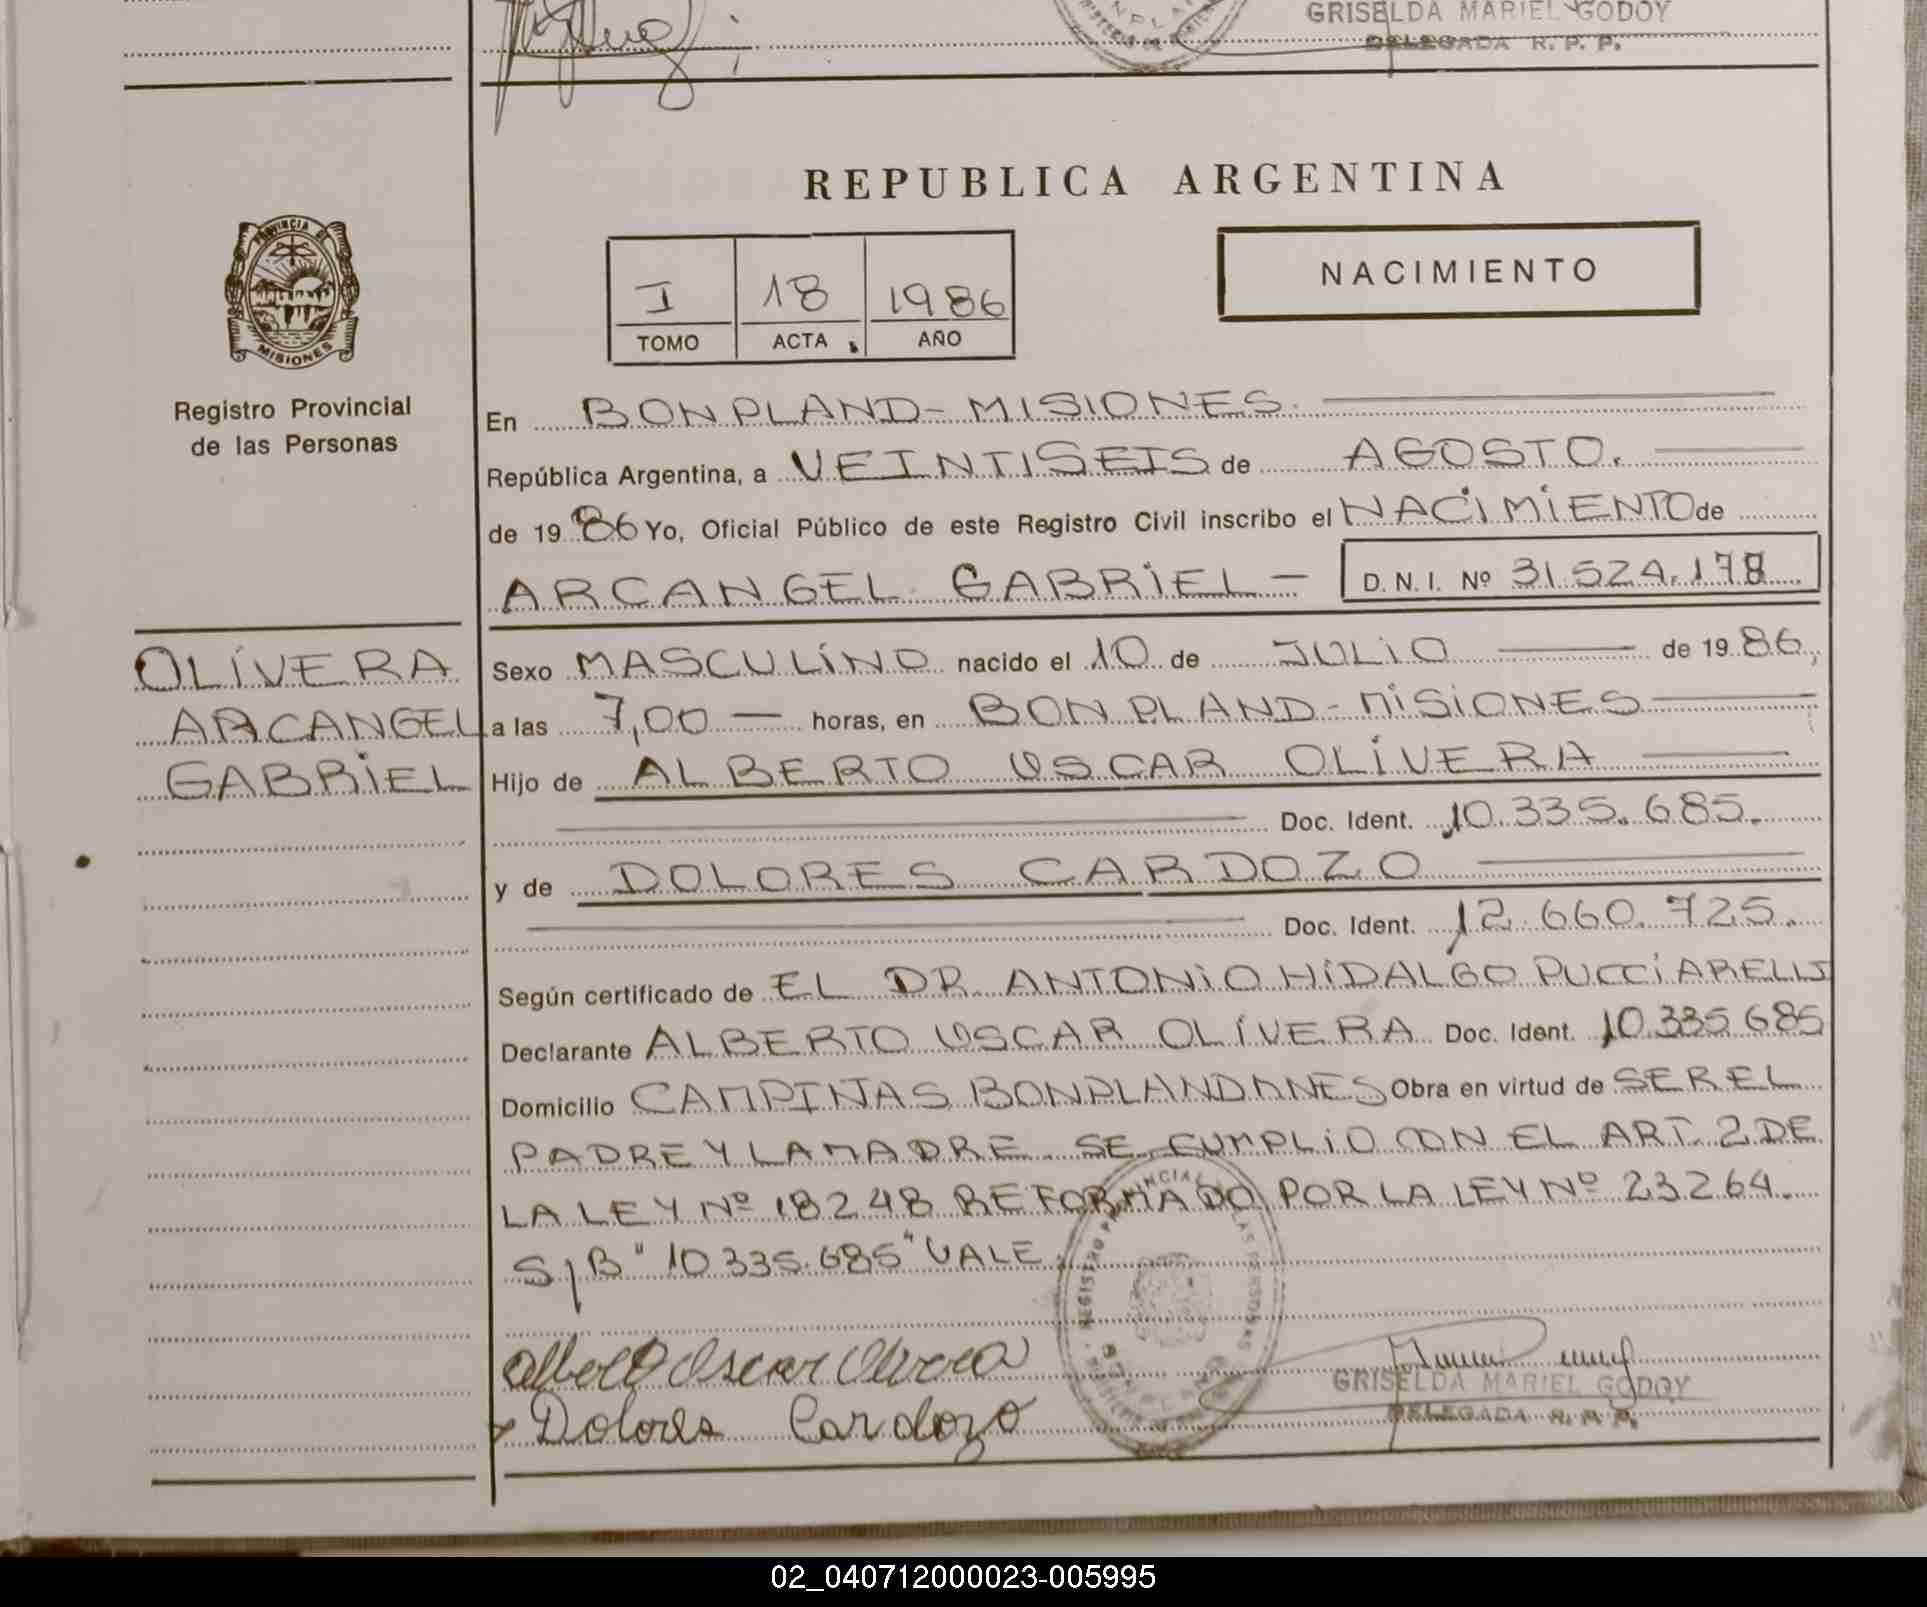 GRISELDA MARIEL GODOY
DELEGADA R. P. P.
REPUBLICA ARGENTINA
PROVINCIA DE
MISIONES
Registro Provincial
de las Personas
I 18 1986
TOMO ACTA AÑO
NACIMIENTO
En BONPLAND-MISIONES.
República Argentina, a VEINTISEIS de AGOSTO.
de 19 86 Yo, Oficial Público de este Registro Civil inscribo el NACIMIENTO de
ARCANGEL GABRIEL — D.N.I. Nº 31.524.178
OLIVERA
ARCANGEL
GABRIEL
Sexo MASCULINO nacido el 10 de JULIO — de 19 86,
a las 7,00 — horas, en BONPLAND-MISIONES
Hijo de ALBERTO OSCAR OLIVERA
Doc. Ident. 10.335.685.
y de DOLORES CARDOZO
Doc. Ident. 12.660.725.
Según certificado de EL DR ANTONIO HIDALGO PUCCIARELLI
Declarante ALBERTO OSCAR OLIVERA Doc. Ident. 10.335.685
Domicilio CAMPINAS BONPLAND MNES Obra en virtud de SER EL
PADRE Y LA MADRE SE CUMPLIO CON EL ART. 2 DE
LA LEY Nº 18248 REFORMADO POR LA LEY Nº 23264.
S/B "10.335.685" VALE
Alberto Oscar Olivera
Dolores Cardozo
GRISELDA MARIEL GODOY
DELEGADA R. P. P.
02_040712000023-005995